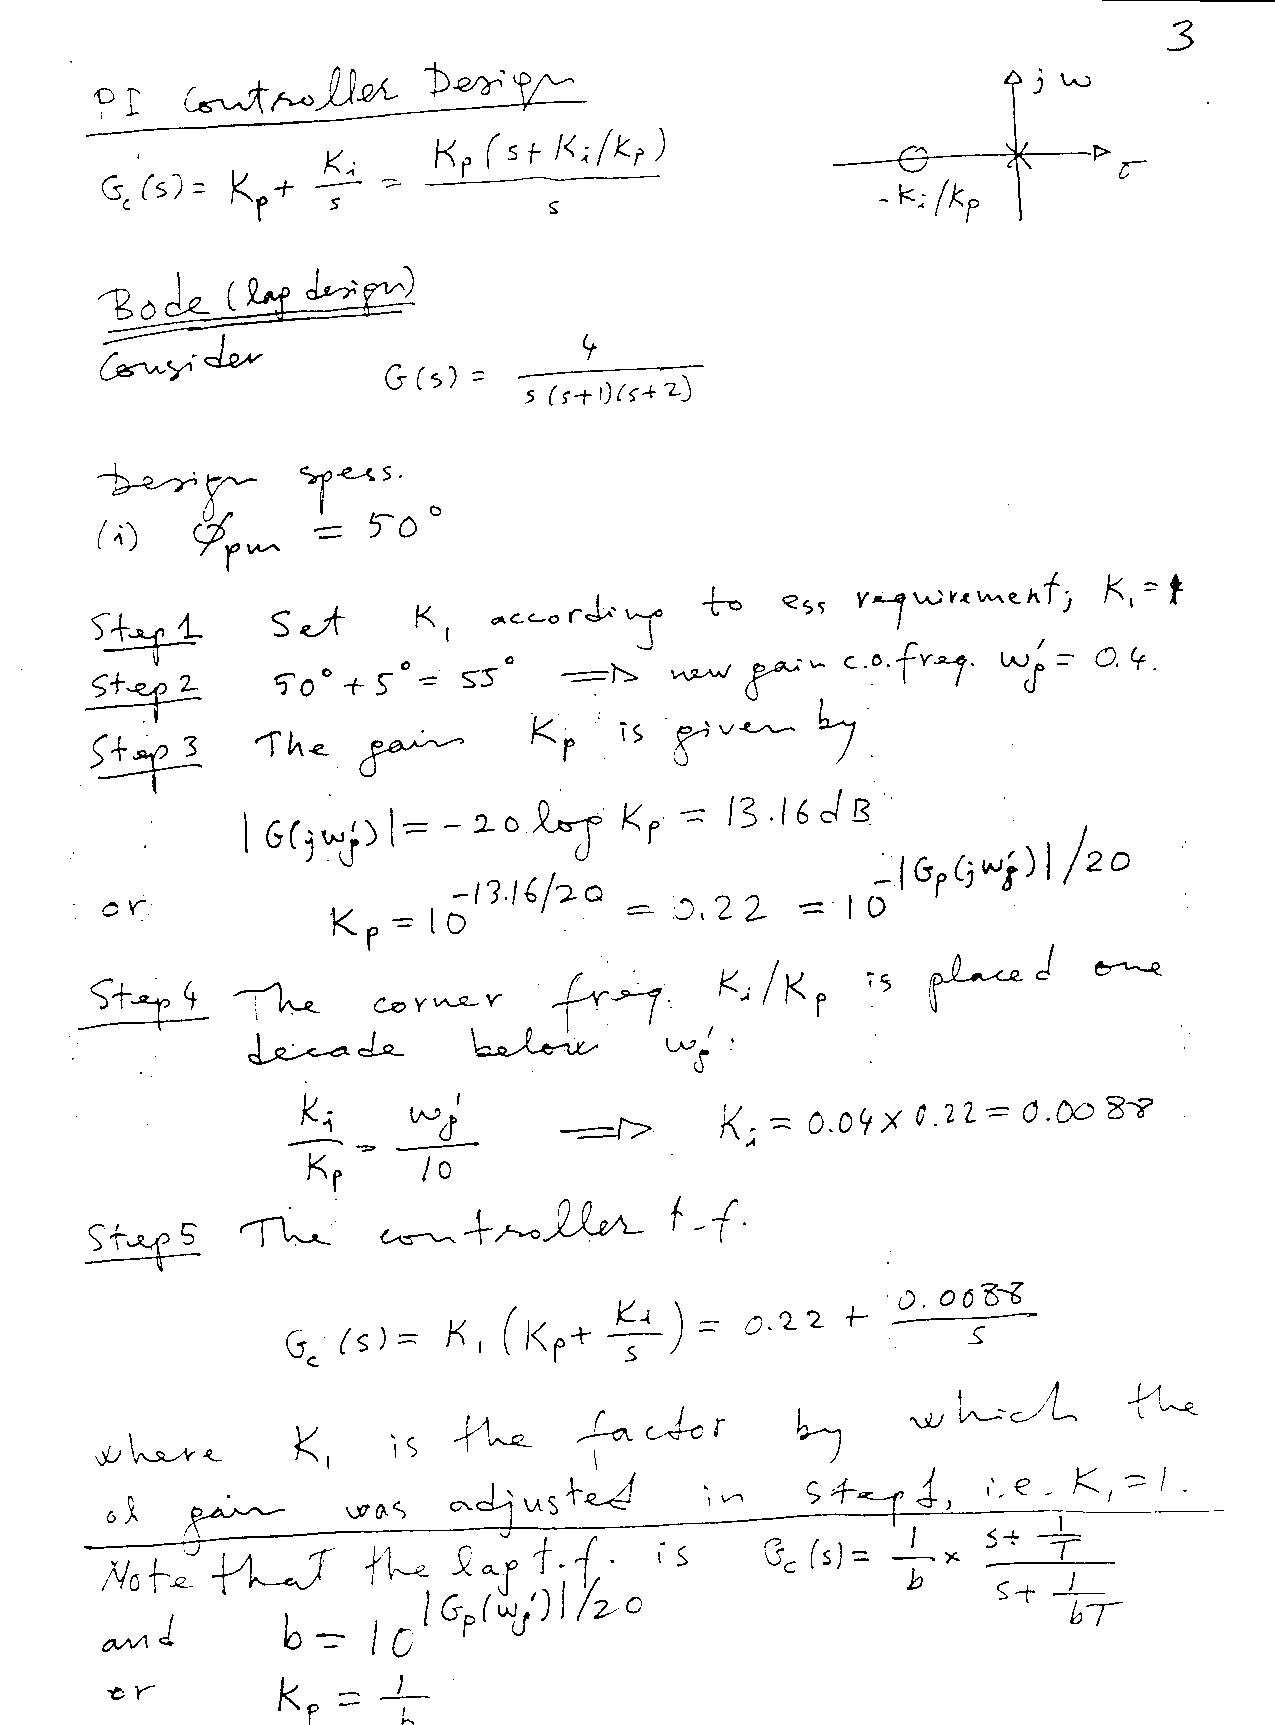 3
PI Controller Design
jω
G_c(s) = K_p + K_i/s = K_p(s + K_i/K_p)/s
σ
-K_i/K_p
Bode (lag design)
Consider G(s) = 4/(s(s+1)(s+2))
Design specs.
(i) Φ_pm = 50°
Step 1 Set K_1 according to ess requirement; K_1 = 1
Step 2 50° + 5° = 55° ⇒ new gain c.o. freq. ω_g' = 0.4.
Step 3 The gain K_p is given by
|G(jω_g')| = -20 log K_p = 13.16 dB
or K_p = 10^(-13.16/20) = 0.22 = 10^(-|G_p(jω_g')|/20)
Step 4 The corner freq. K_i/K_p is placed one
decade below ω_g':
K_i/K_p = ω_g'/10 ⇒ K_i = 0.04 × 0.22 = 0.0088
Step 5 The controller t.f.
G_c(s) = K_1 (K_p + K_i/s) = 0.22 + 0.0088/s
where K_1 is the factor by which the
ol gain was adjusted in step 1, i.e. K_1 = 1.
Note that the lag t.f. is G_c(s) = 1/b × (s + 1/T)/(s + 1/bT)
and b = 10^(|G_p(ω_g')|/20)
or K_p = 1/b